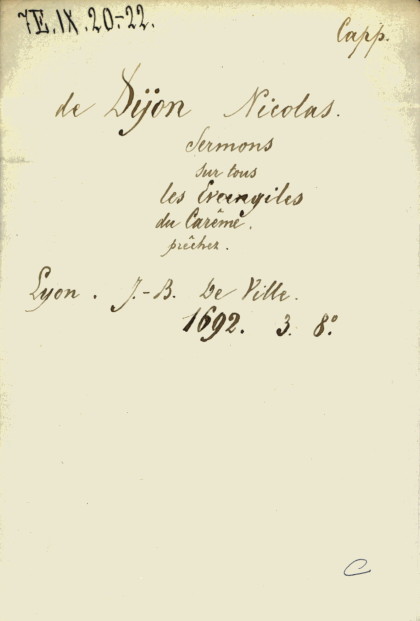 7E.IX.20-22.
Capp.
de Dijon Nicolas.
Sermons
sur tous
les Evangiles
du Carême.
prêchez.
Lyon. J.-B. De Ville.
1692. 3. 8°.
C